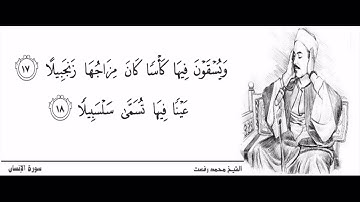 وَيُسْقَوْنَ فِيهَا كَأْسًا كَانَ مِزَاجُهَا زَنجَبِيلًا ١٧
عَيْنًا فِيهَا تُسَمَّىٰ سَلْسَبِيلًا ١٨
الشيخ محمد رفعت
سورة الإنسان